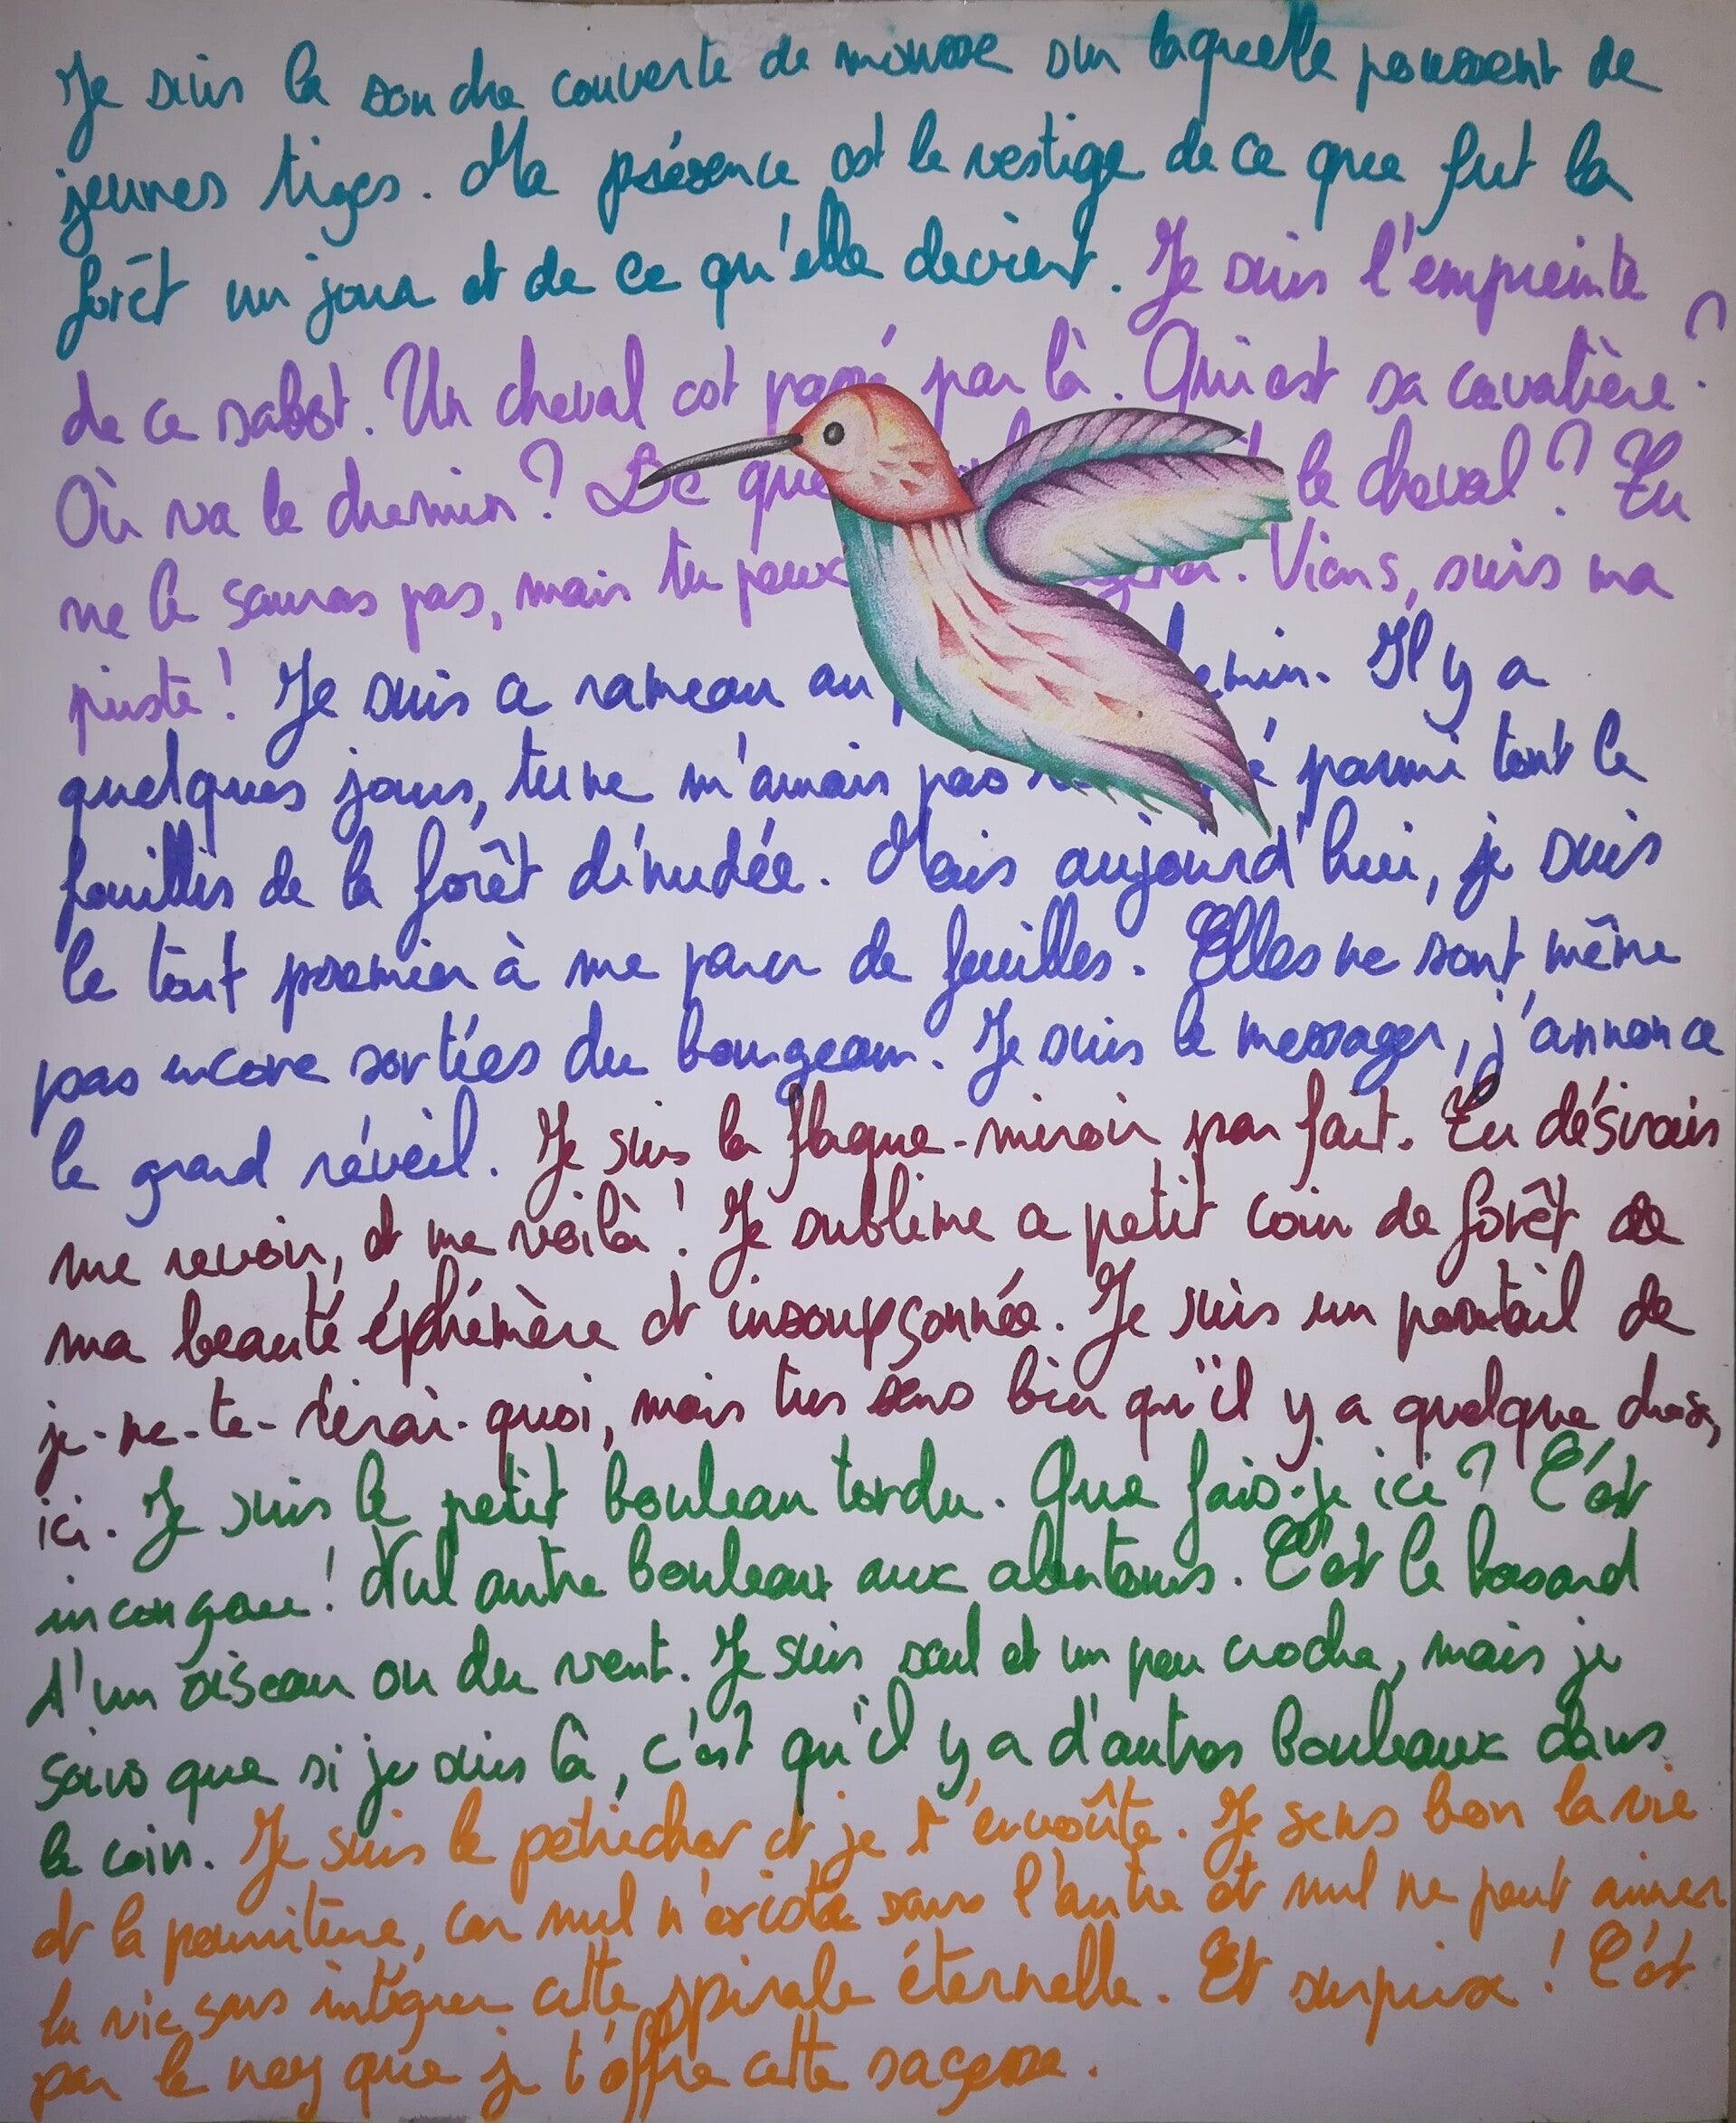 Je suis la souche couverte de mousse sur laquelle poussent de
jeunes tiges. Ma présence est le vestige de ce que fut la
forêt un jour et de ce qu'elle devient. Je suis l'empreinte
de ce sabot. Un cheval est passé par là. Qui est sa cavalière ?
Où va le chemin ? De que le cheval ? Tu
ne le sauras pas, mais tu peux . Viens, suis ma
piste ! Je suis ce rameau au . Il y a
quelques jours, tu ne m'aurais pas parmi tout le
fouillis de la forêt dénudée. Mais aujourd'hui, je suis
le tout premier à me parer de feuilles. Elles ne sont même
pas encore sorties du bourgeon. Je suis le messager, j'annonce
le grand réveil. Je suis la flaque-miroir parfait. Tu désirais
me revoir, et me voilà ! Je sublime ce petit coin de forêt de
ma beauté éphémère et insoupçonnée. Je suis un portail de
je-ne-te-dirai-quoi, mais tu sens bien qu'il y a quelque chose,
ici. Je suis le petit bouleau tordu. Que fais-je ici ? C'est
incongru ! Nul autre bouleau aux alentours. C'est le hasard
d'un oiseau ou du vent. Je suis seul et un peu croche, mais je
sais que si je suis là, c'est qu'il y a d'autres bouleaux dans
le coin. Je suis le petrichor et je t'envoûte. Je sens bon la vie
et la pourriture, car nul n'existe sans l'autre et nul ne peut aimer
la vie sans intégrer cette spirale éternelle. Et surprise ! C'est
par le nez que je t'offre cette sagesse.